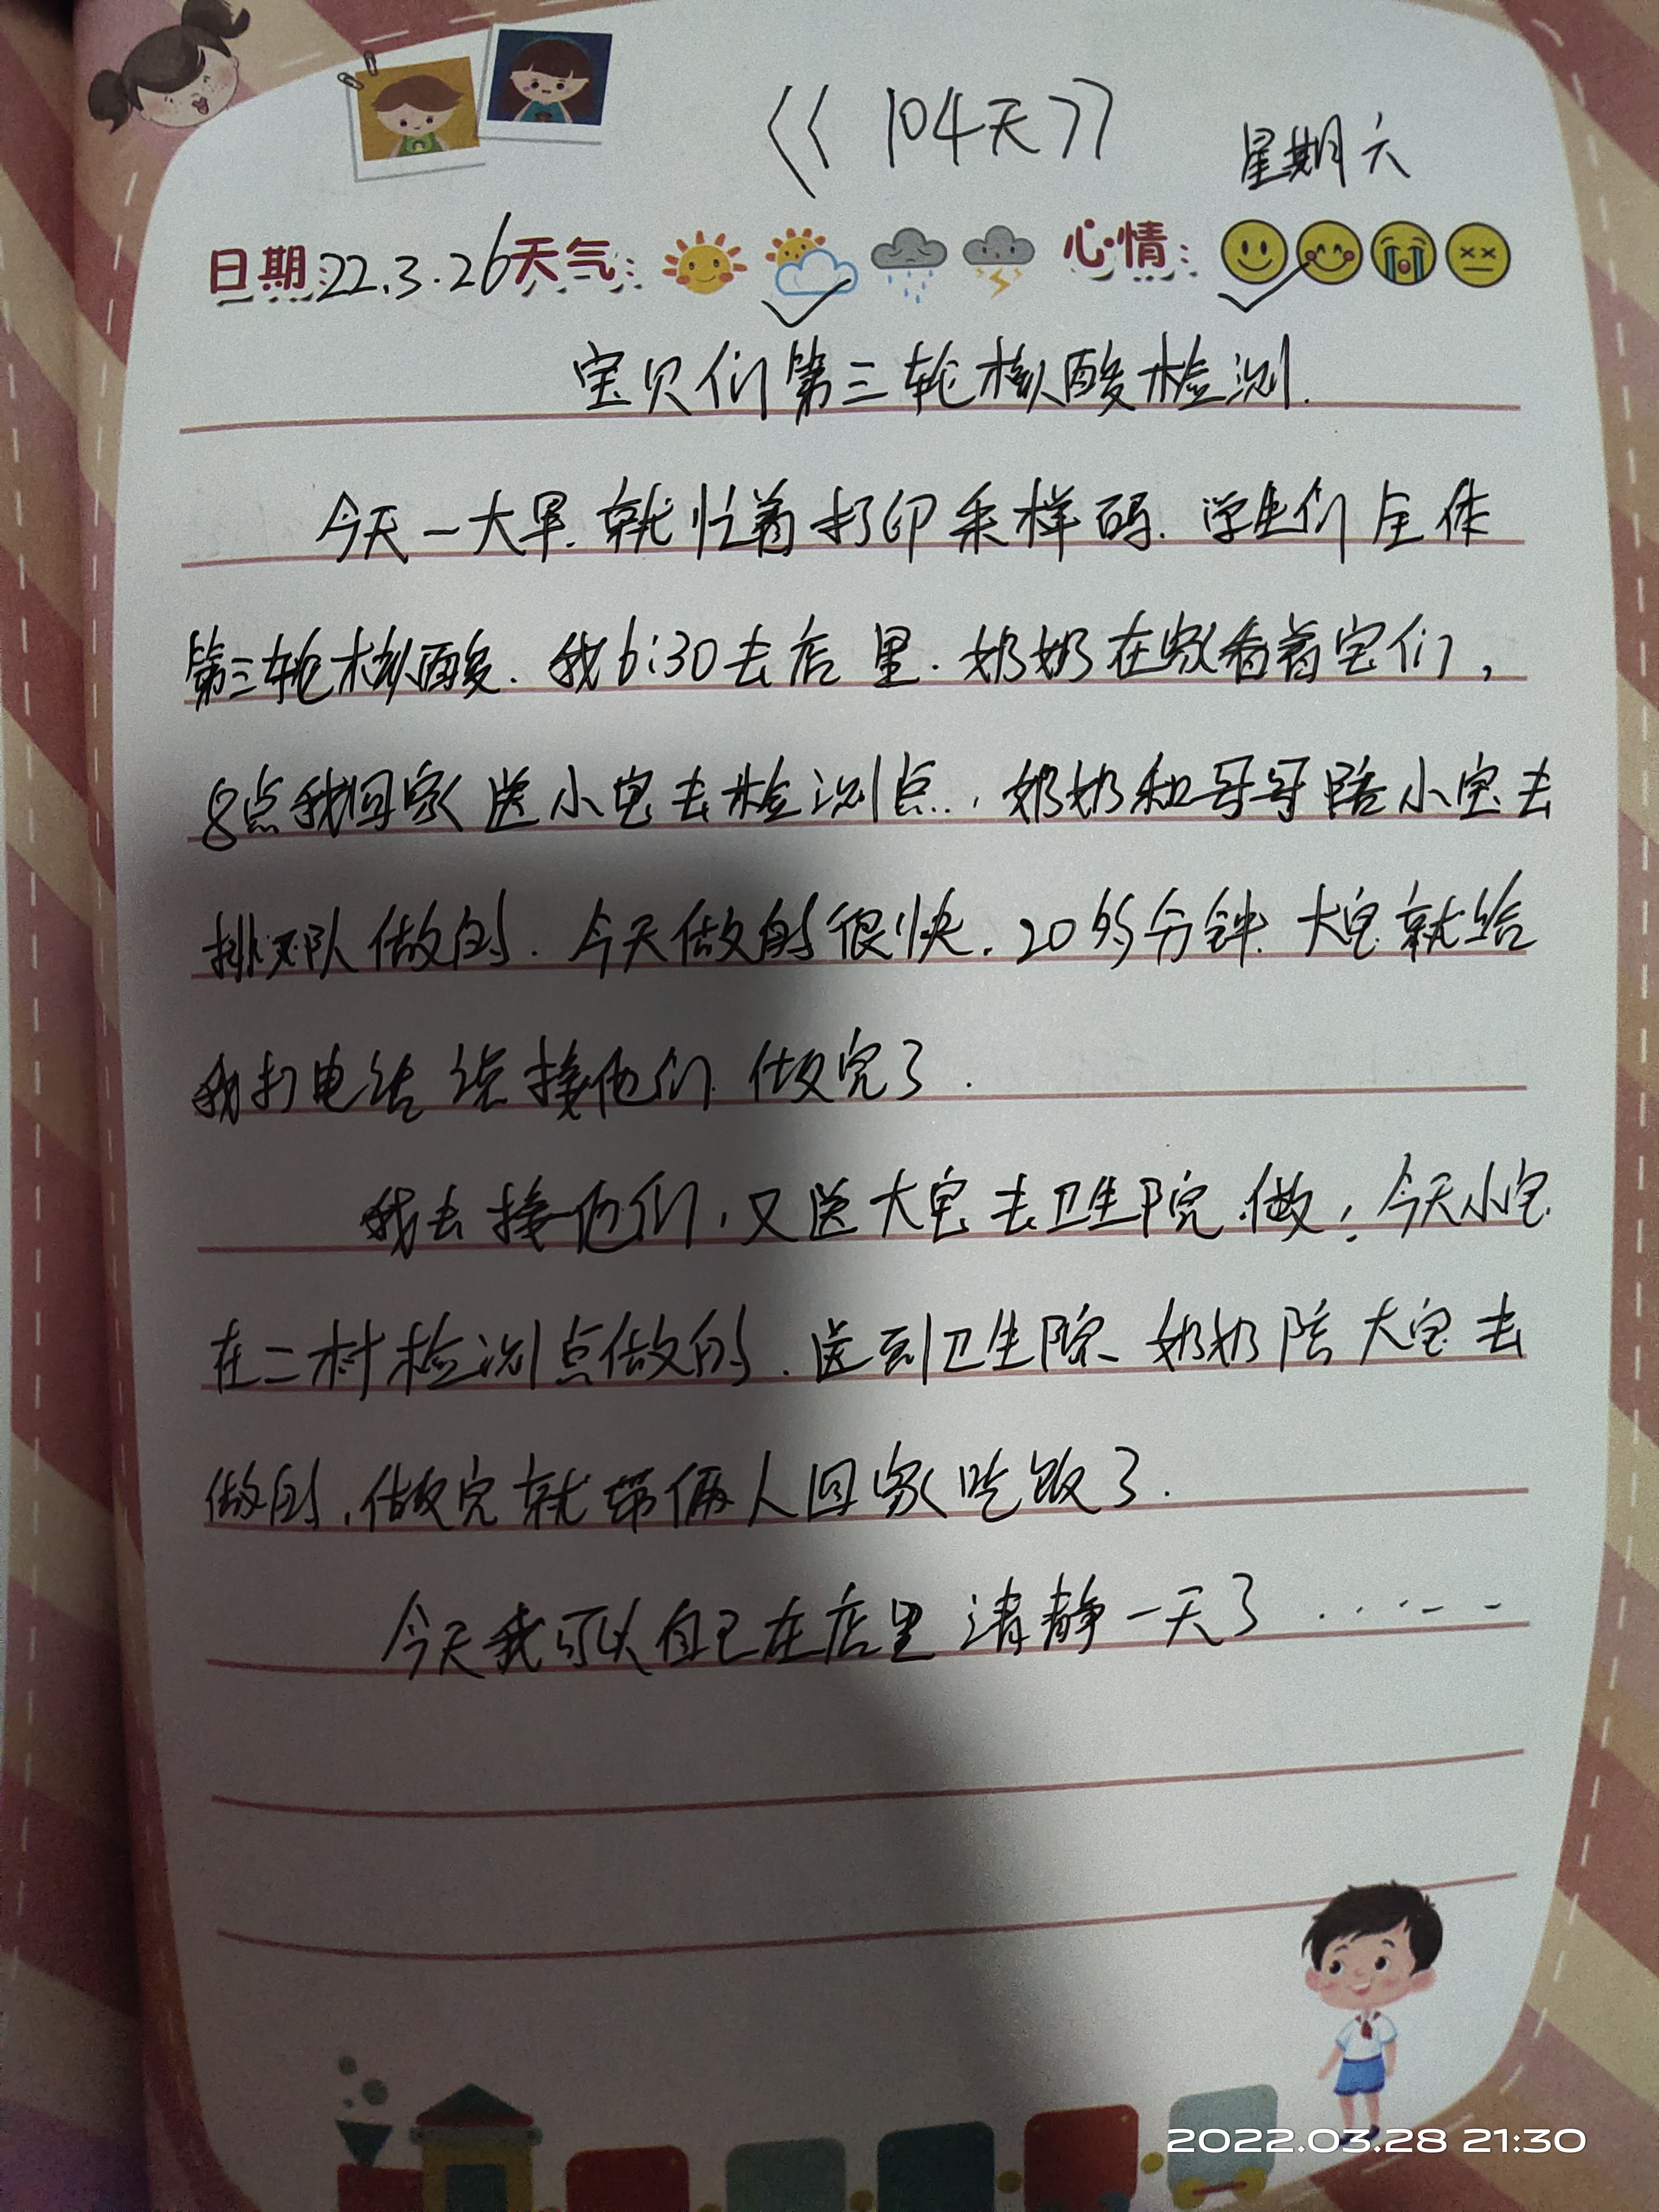 《104天》
星期六
日期:22.3.26天气: 心情:
宝贝们第三轮核酸检测.
今天一大早.就忙着打印采样码.学生们全体
第三轮核酸.我6:30去店里.奶奶在家看着宝们,
8点我回家送小宝去检测点..,奶奶和哥哥陪小宝去
排队做的.今天做的很快.20多分钟.大宝就给
我打电话说接他们.做完了.
我去接他们,又送大宝去卫生院.做;今天小宝
在二村检测点做的.送到卫生院、奶奶陪大宝去
做的,做完就带俩人回家吃饭了.
今天我可以自己在店里清静一天了······
2022.03.28 21:30